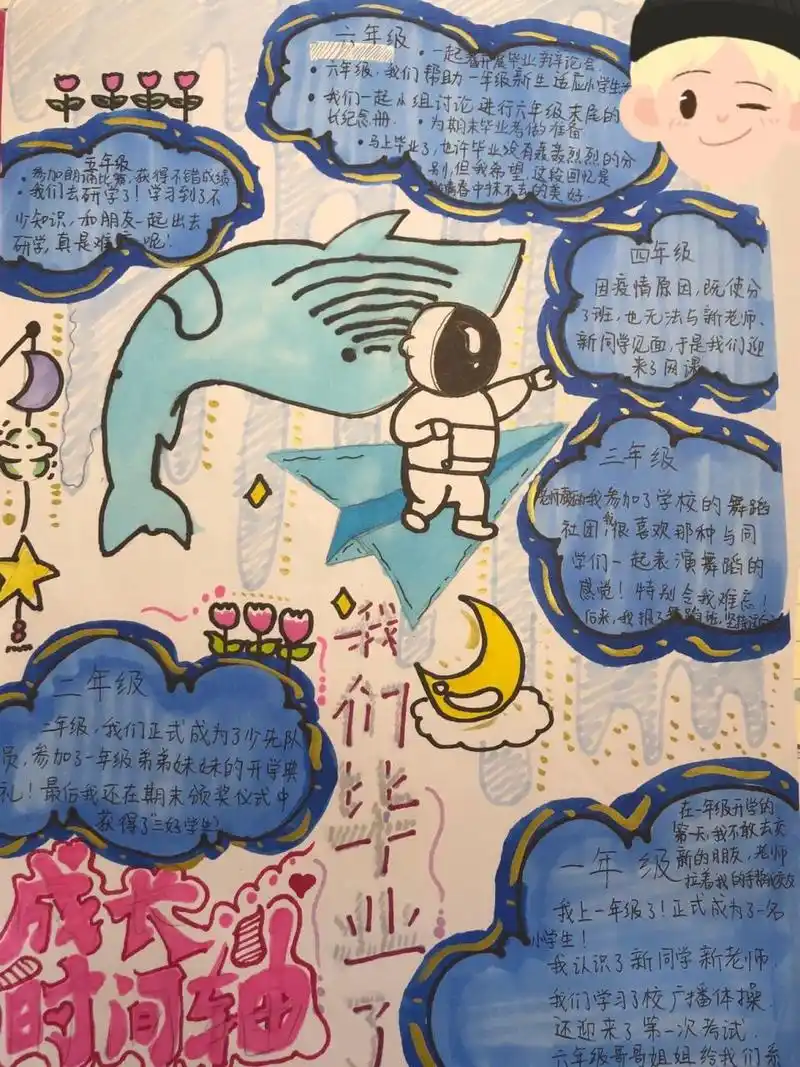 六年级
·一起召开展毕业辩论会
·六年级,我们帮助一年级新生适应小学生
·我们一起小组讨论进行六年级末尾的
长纪念册.
·为期末毕业考做准备
·马上毕业了,也许毕业没有轰轰烈烈的分
别,但我希望,这段回忆是
青春中抹不去的美好
五年级
·参加朗诵比赛,获得不错成绩
·我们去研学了!学习到了不
少知识,和朋友一起出去
研学,真是难 呢!
四年级
因疫情原因,既使分
了班,也无法与新老师、
新同学见面,于是我们迎
来了网课
三年级
我参加了学校的舞蹈
社团,我很喜欢那种与同
学们一起表演舞蹈的
感觉!特别令我难忘!
后来,我报了舞蹈班,坚持
二年级
二年级,我们正式成为了少先队
员,参加了一年级弟弟妹妹的开学典
礼!最后我还在期末颁奖仪式中
获得了“三好学生”
我们毕业了
成长
时间轴
一年级
在一年级开学的
第一天,我不敢去交
新的朋友,老师
拉着我的手
我上一年级了!正式成为了一名
小学生!
我认识了新同学新老师.
我们学习了校广播体操.
还迎来了第一次考试.
六年级哥哥姐姐给我们系